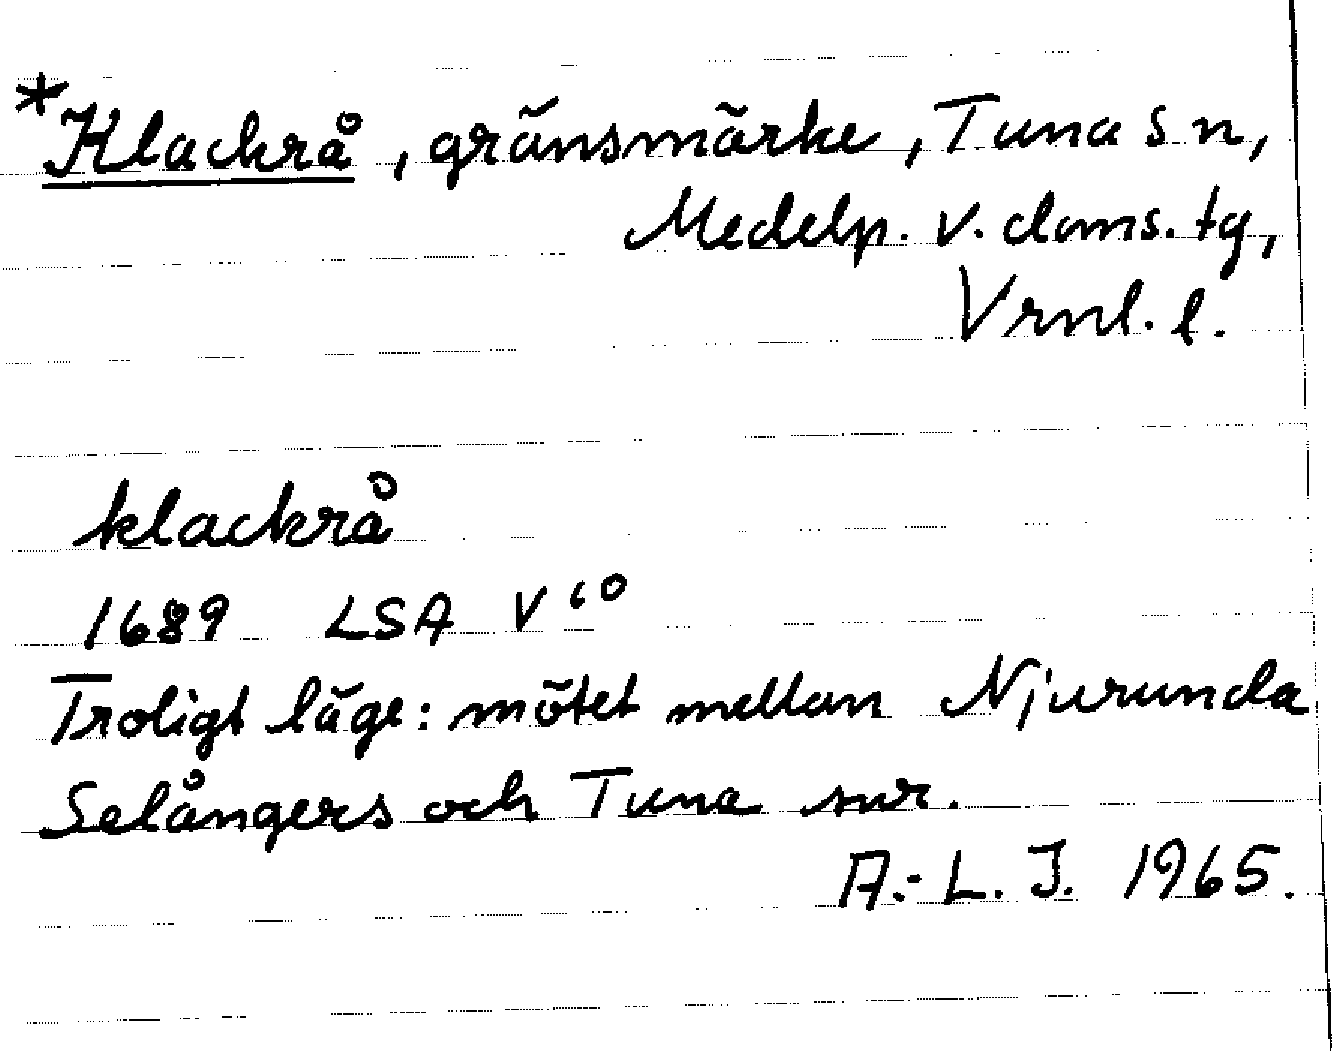 *Klackrå, gränsmärke, Tuna sn,
Medelp. v. doms. tg,
Vrnl. l.
klackrå
1689 LSA V 60
Troligt läge: mötet mellan Njurunda
Selångers och Tuna snr.
A.-L. J. 1965.